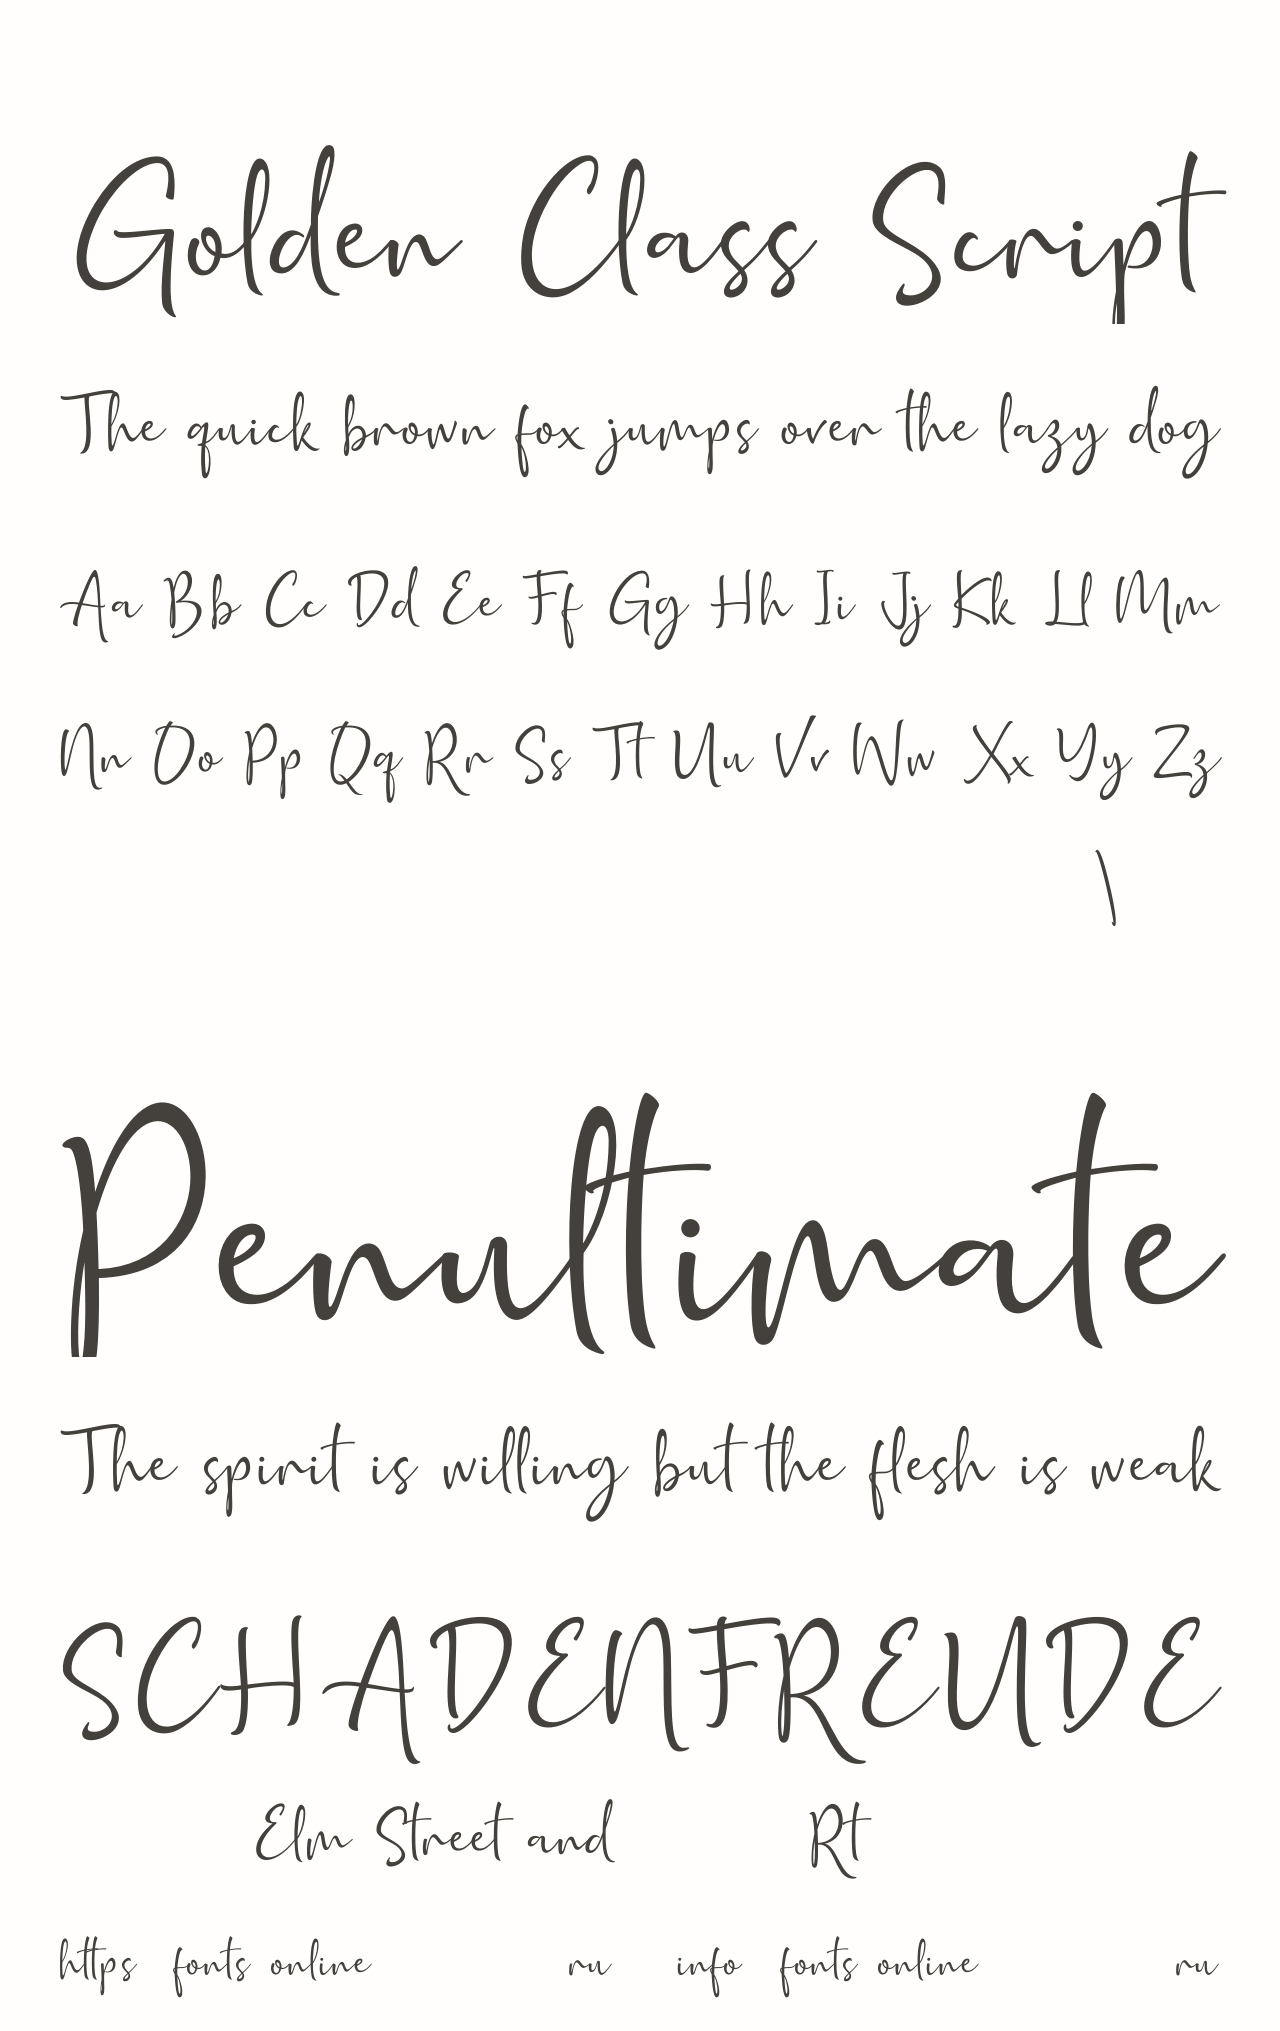 Golden Class Script
The quick brown fox jumps over the lazy dog
Aa Bb Cc Dd Ee Ff Gg Hh Ii Jj Kk Ll Mm
Nn Oo Pp Qq Rr Ss Tt Uu Vv Ww Xx Yy Zz
\
Penultimate
The spirit is willing but the flesh is weak
SCHADENFREUDE
Elm Street and Rt
https fonts online ru info fonts online ru